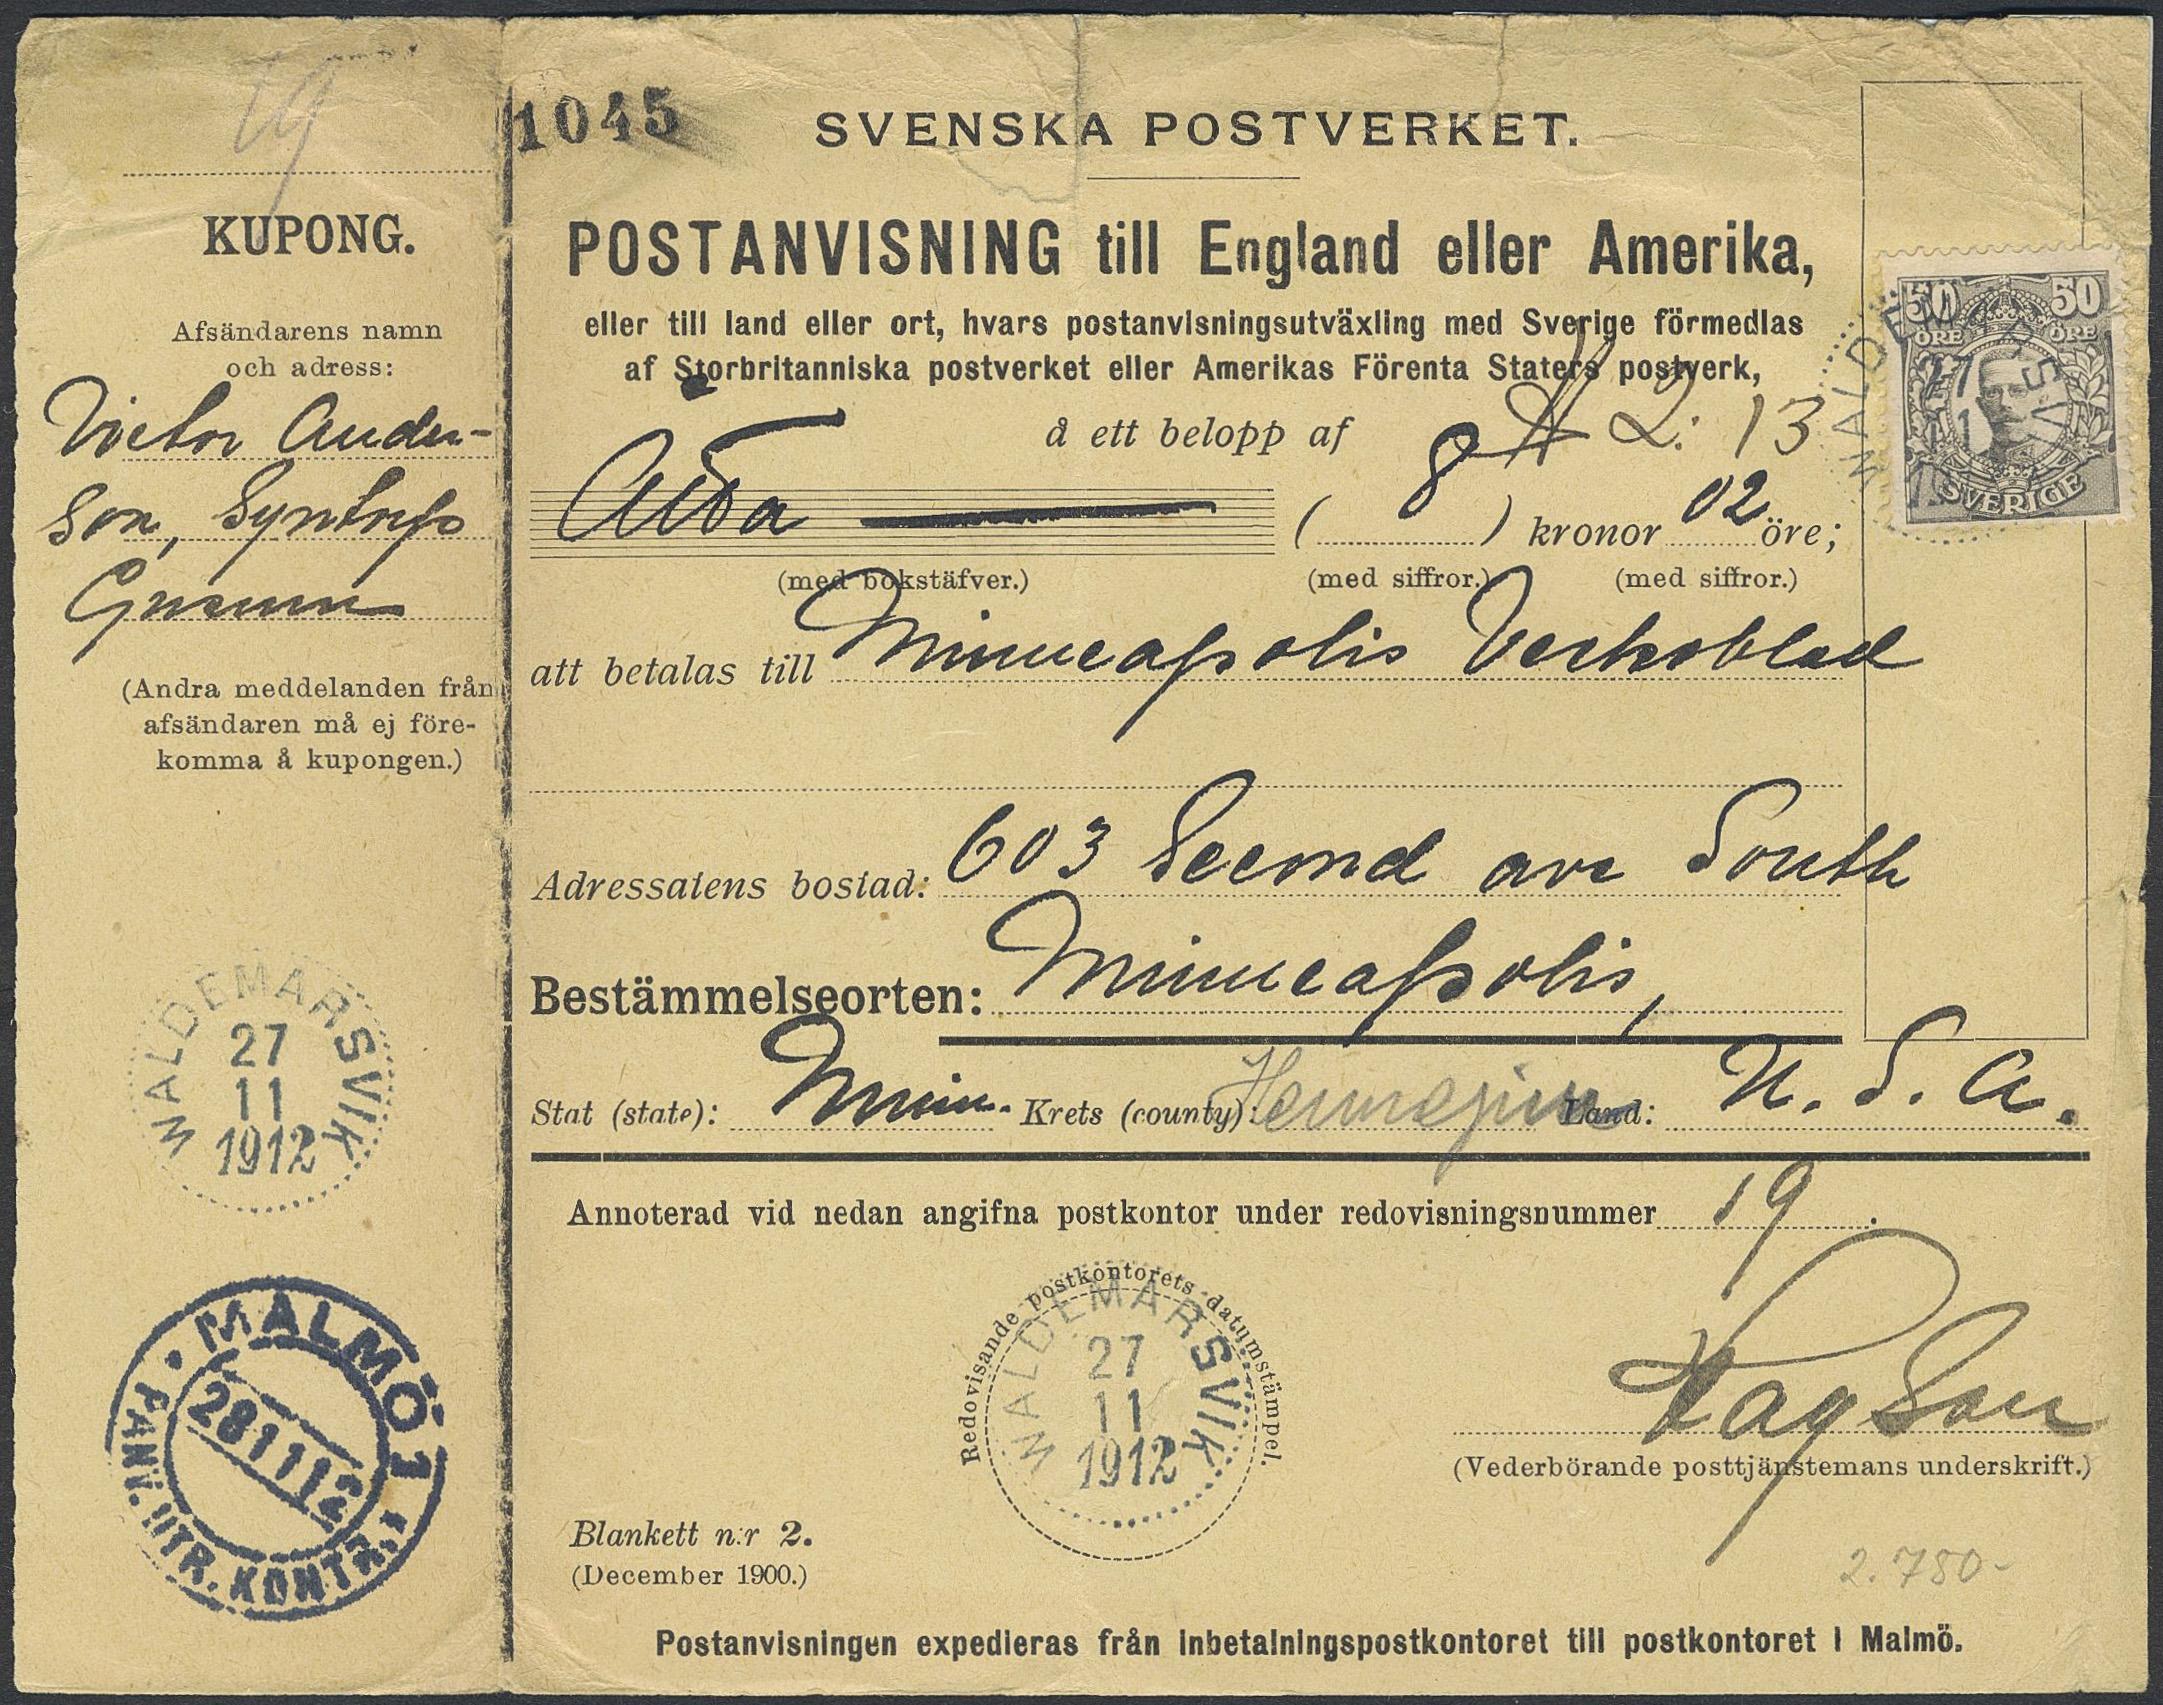 19
KUPONG.
Afsändarens namn
och adress:
Victor Ander-
son, Syntorp
Gusum
(Andra meddelanden från
afsändaren må ej före-
komma å kupongen.)
WALDEMARSVIK
27
11
1912
MALMÖ 1
28 11 12
P.ANV. UTR. KONTR.
1045
SVENSKA POSTVERKET.
POSTANVISNING till England eller Amerika,
eller till land eller ort, hvars postanvisningsutväxling med Sverige förmedlas
af Storbritanniska postverket eller Amerikas Förenta Staters postverk,
å ett belopp af
2: 13
Åtta ( 8 ) kronor 02 öre;
(med bokstäfver.) (med siffror.) (med siffror.)
att betalas till Minneapolis Veckoblad
Adressatens bostad: 603 Second ave South
Bestämmelseorten: Minneapolis,
Stat (state): Minn. Krets (county): Hennepin Land: U. S. A.
Annoterad vid nedan angifna postkontor under redovisningsnummer 19.
Redovisande postkontorets datumstämpel.
WALDEMARSVIK
27
11
1912
(Vederbörande posttjänstemans underskrift.)
Blankett n:r 2.
(December 1900.)
2.750-
Postanvisningen expedieras från inbetalningspostkontoret till postkontoret i Malmö.
50 50
ÖRE ÖRE
SVERIGE